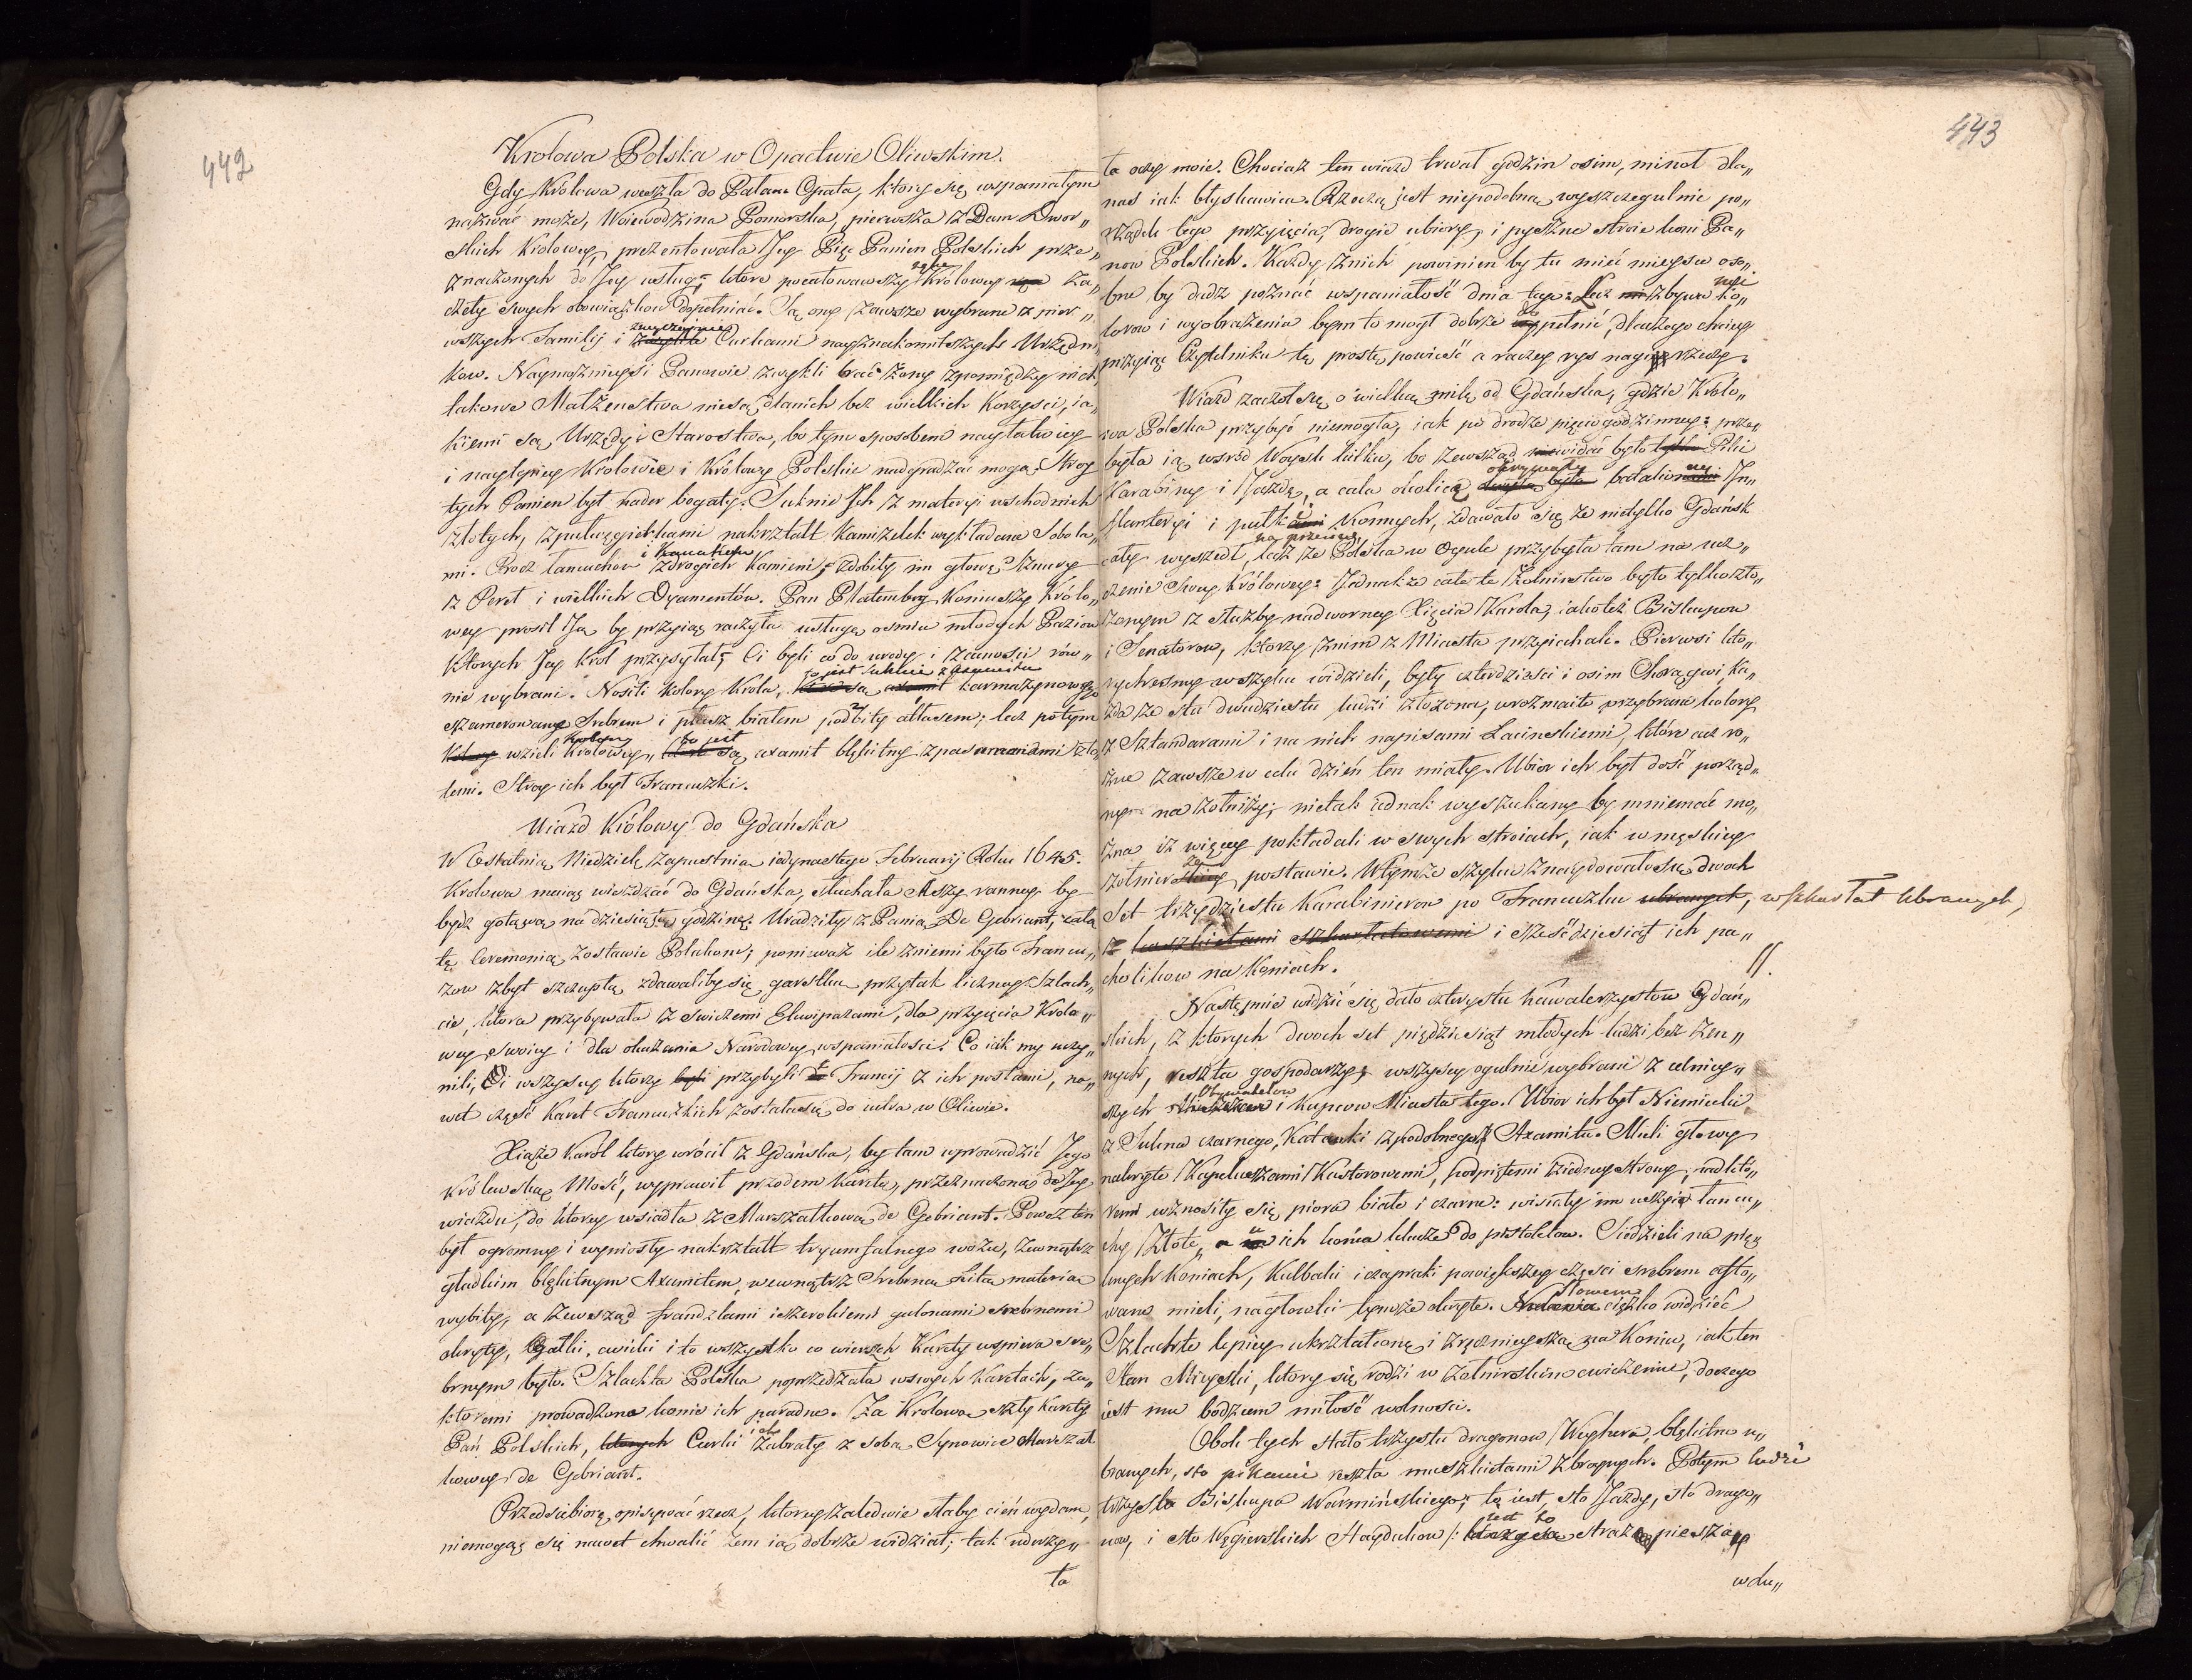 442
Krolowa Polska w Opactwie Oliwskim.
Gdy Krolowa weszła do Pałacu Opata, który się wspaniałym
nazwać może, Woiewodzina Pomorska, pierwsza z Dam Dwor„
skich Krolowey, prezentowała Jey Pięć Panien Polskich prze„
znaczonych do Jey usług; które pocałowawszy rękę Królowey za„
częły swych obowiązkow dopełniać. Są ony zawsze wybrane z pier„
wszych Familij i zwyczajnie Curkami nayznakomitszych Urzędni„
kow. Naymożnieysi Panowie zwykli brać żony zpomiędzy nich
takowe Małżenstwa niesą dlanich bez wielkich Korzysci, ia„
kiemi są Urzędy i Starostwa, bo tym sposobem nayłatwiey
i naylepiey Krolowie i Królowy Polskie nadgradzać mogą. Stroy
tych Panien był nader bogaty. Suknie Ich z materyi wschodnich
złotych, zpętlycgierkami nakształt Kamizelek wykładana Sobola„
mi. Procz łancuchow i Kanakow zdrogich Kamieni, zdobiły im głowę Sznury
z Pereł i wielkich Dyamentów. Pan Platemberg Koniuszy Królo„
wey prosił Ją by przyiąć raczyła usługę osmiu młodych Paziow
Ktorych Jey Krol przysyłał; Ci byli co do urody i zacnosci rów„
nie wybrani. Nosili kolory Krola, to jest Suknie z Axamitu karmazynowego
szamerowane Srebrem i płaszcz białem podbity atłasem; lecz potym
wzieli Kolory Krolowey, to jest axamit błękitny zpasamanami zło„
temi. Stroy ich był Francuzki.
Uiazd Królowy do Gdańska
W Ostatnią Niedzielę Zapustnia iedynastego Februarij Roku 1645.
Krolowa maiąc wieżdżać do Gdańska, słuchała Mszy ranney by
bydz gotową na dziesiątą godzinę. Uradziły z Panią De Gebriant, całą
tę Ceremonią zostawić Polakom; ponieważ ile zniemi było Francu„
zow zbyt szczupłą zdawaliby się garstką przytak liczney Szlach„
cie, ktora przybywała z swiezemi Ekwipażami, dla przyięcia Krolo„
wey swoiey i dla okazania Narodowey wspaniałosci. Co iak my uczy„
nili, Ci wszyscy ktorzy przybyli z Francij z ich posłami, na„
wet część Karet Francuzkich zostałasię do iutra w Oliwie.
Xiąże Karol ktory wrócił z Gdańska, by tam wprowadzić Jego
Królewską Mość, wyprawił przodem karetę, przeznaczoną do Jey
wiazdu, do ktorey wsiadła z Marszałkową de Gebriant. Powoz ten
był ogromny i wyniosły nakształt tryumfalnego wozu, zewnątrz
gładkim błękitnym Axamitem, wewnątrz Srebrną litą materią
wybity, a zewsząd frandzlami iszerokiemi galonami srebrnemi
okryty, Gałki, cwieki i to wszystko co wierzch Karety wspiera sre„
brnym było. Szlachta Polska poprzedzała wswych Karetach, za„
ktoremi prowadzono konie ich paradne. Za Królową szły Karety
Pań Polskich, Curki ich zabrały z sobą Synowice Marszał
kowey de Gebriant.
Przedsiębiorę opisywać rzecz, ktorey zaledwie słaby cień wydam,
niemogąc się nawet chwalić żem ią dobrze widział; tak uderzy„
ła
443
ła oczy moie. Chociaz ten wiazd trwał godzin osim, minoł dla„
nas iak błyskawica. Rzeczą jest niepodobną wyszczegulnić po„
rządek tego przyięcia, drogie ubiory, i pyszne stroie koni Pa„
now Polskich. Każdy znich powinien by tu mieć mieysce oso„
bne by dadz poznać wspaniałość dnia tego. Lecz zbywa mi ko„
lorow i wyobrażenia bym to mogł dobrze dopełnić, dlaczego chciey
przyiąć Czytelniku tę prostą powieść a raczey rys nagi rzeczy.
Wiazd zaczoł się o wielką milę od Gdańska, gdzie Królo„
wa Polska przybyć niemogła, iak po drodze pięciogodzinney; prze„
była ią wsród Woysk kilku, bo zewsząd widać było Piki
Karabiny i Jazdę, a cała okolicę okrywały bataliony In„
fanteryi i pułki Konnych, zdawało się że nietylko Gdańsk
cały wyszedł, lecz że Polska w ogule przybyła tam na ucz„
czenie Swey Królowey: Jednakże całe te Żołnierstwo było tylko zło„
żonym z służby nadworney Xięcia Karola, iakoteż Biskupow
i Senatorow, ktorzy znim z Miasta przyiechali. Pierwsi kto„
rychesmy wszyku widzieli, były czterdziesci i osim Chorągwi, ka„
żda ze stu dwudziestu ludzi złożona, wrozmaite przybrane kolory
z Sztandarami i na nich napisami Łacinskiemi, które coż ro„
żne zawsze w celu dzień ten miały. Ubior ich był dość porząd„
nym na żołnierzy, nietak iednak wyszukany by mniemać mo„
żna iż więcey pokładali w swych stroiach, iak w męskiey
żołnierskiey postawie. Wtymże szyku znaydowałosię dwoch
set trzydziestu Karabinierow po Francuzku wszkarłat ubranych,
i sześćdziesiąt ich pa„
cholikow na Koniach.
Następnie widzieć się dało czterystu kawalerzystow Gdań„
skich, z ktorych dwoch set pięćdziesiąt młodych ludzi bez żen„
nych, reszta gospodarzy, wszyscy ogulnie wybrani z celniey„
szych Obywatelow i Kupcow Miasta tego. Ubior ich był Niemiecki
z Sukna czarnego, Katanki zpodobnego Axamitu. Mieli głowy
nakryte Kapeluszami Kastorowemi, podpiętemi ziedney strony, nad kto„
remi wznosiły się piora białe i czarne: wisiały im uszyie łancu„
chy złote, a u ich konca klucze do pistoletow. Siedzieli na pię„
knych koniach, Kulbaki i czapraki powiększey częsci srebrem afto„
wane mieli, nagłowki tymże okryte. Słowem ciężko widzieć
Szlachte lepiey ukształconą i zręcznieyszą na Koniu, iak ten
Stan Mieyski, ktory się rodzi w żołnierskim cwiczeniu, doczego
iest mu bodzcem miłość wolnosci.
Obok tych stało trzystu dragonow Weyhera, błękitno u„
branych, sto pikami reszta muszkietami zbroynych. Potym ludzi
trzysta Biskupa Warmińskiego; to iest, sto Jazdy, sto drago„
now, i sto Węgierskich Hayducow /: jest to straż piesza
w du„